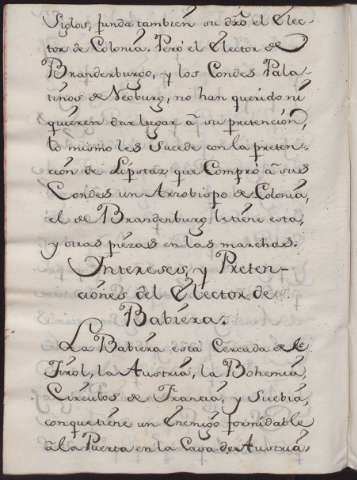 Siglos, funda tambien su dro el Elec-
tor de Colonia. Pero el Elector de
Brandenburgo, y los Condes Pala-
tinos de Neoburg, no han querido ni
quieren dar lugar à su pretencion,
lo mismo les sucede con la preten-
cion de Lipstaz, que Comprò à sus
Condes un Arzobispo de Colonia,
el de Brandenburg letiene esta,
y otras piezas en las marchas.
Intereses, y Preten-
ciones del Elector de
Babiera.
La Babiera està Cercada de le
Tirol, la Austria, la Bohemia,
Circulos de Francia, y Suebia,
conque tiene un Enemigo formidable
à la Puerta en la Casa de Austria